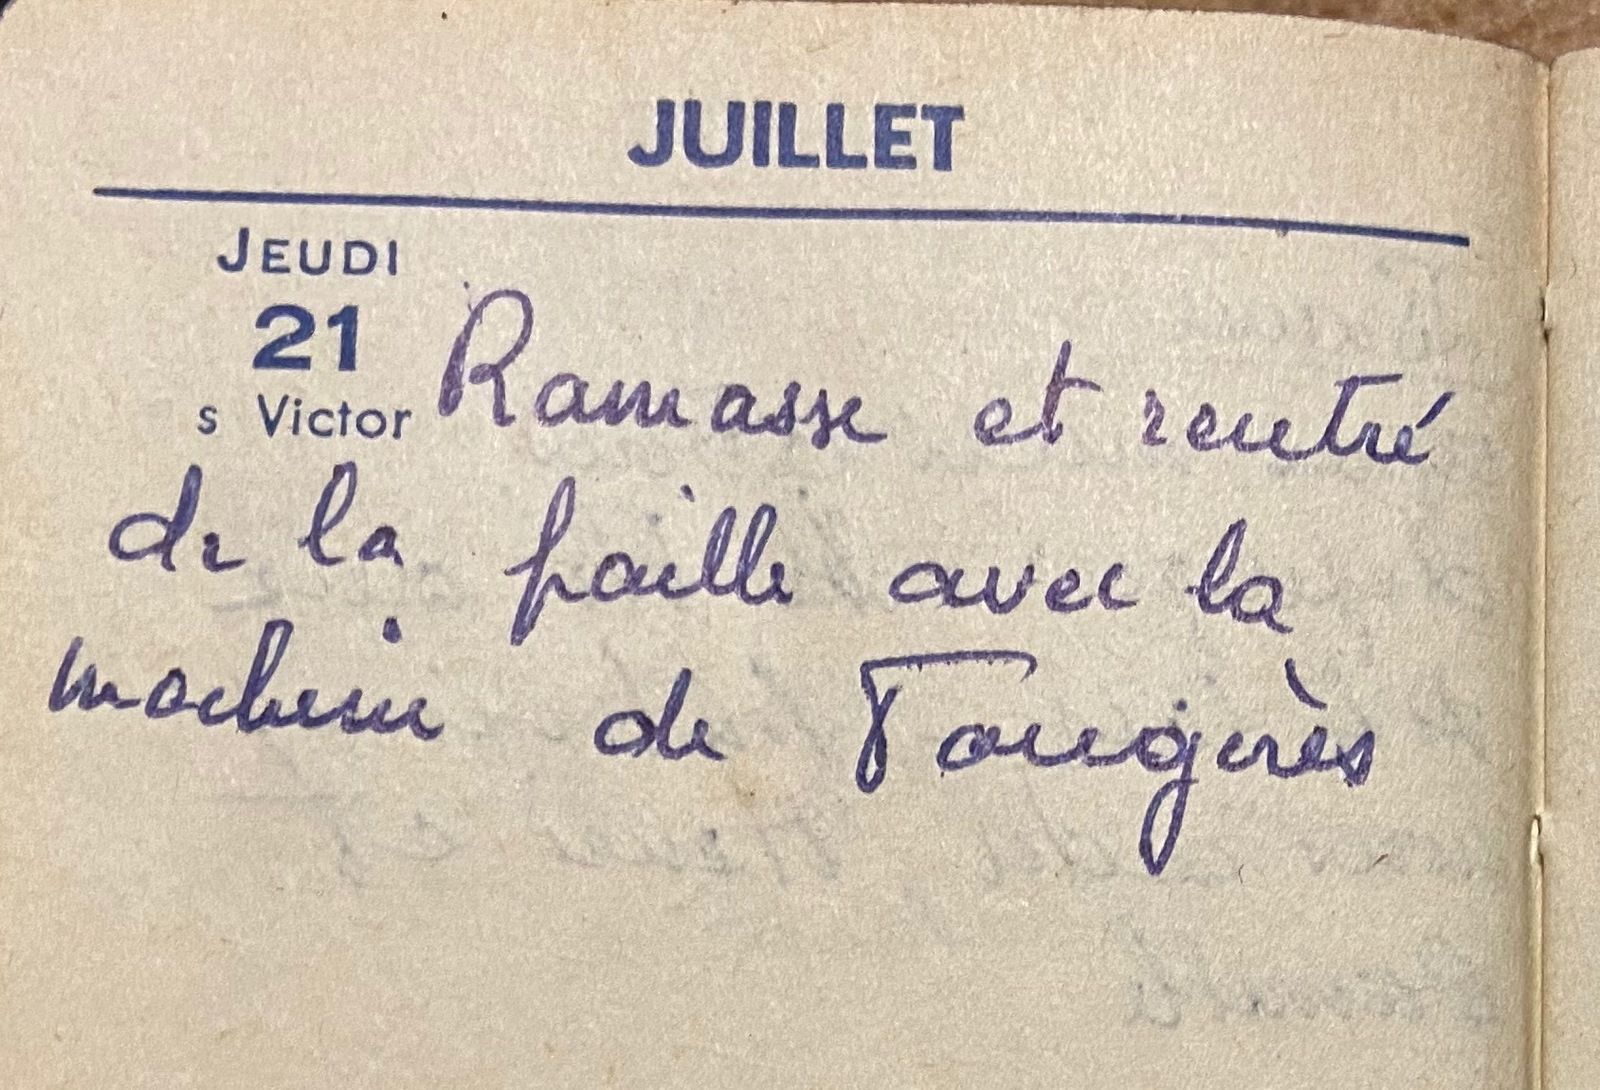 JUILLET
JEUDI
21
s Victor
Ramasse et rentré
de la paille avec la
machine de Fougères